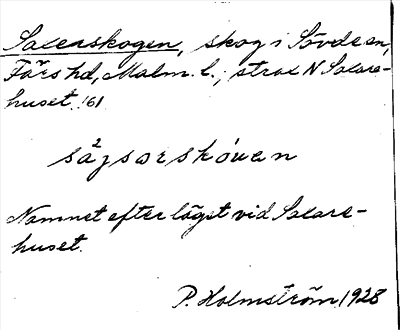 Saxenskogen, skog i Sövde sn,
Färs hd, Malm. l.; strax N Saxare-
huset. '61
skóuen
Namnet efter läget vid Saxare-
huset.
P. Holmström, 1928